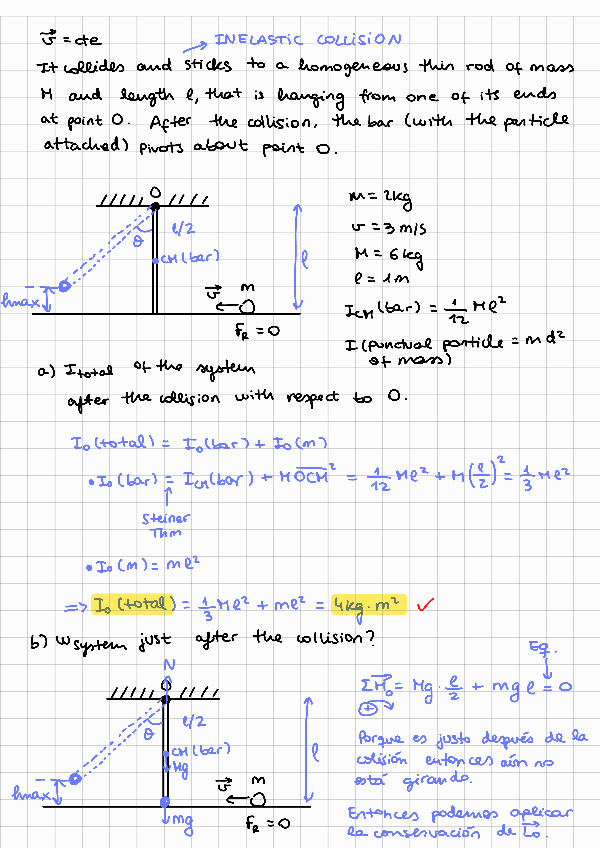 v⃗ = cte
INELASTIC COLLISION
It collides and sticks to a homogeneous thin rod of mass
M and length l, that is hanging from one of its ends
at point O. After the collision, the bar (with the particle
attached) pivots about point O.
O
l/2
θ
CM (bar)
hmax
v⃗
m
l
F_R = 0
m = 2kg
v = 3 m/s
M = 6 kg
l = 1 m
I_CM (bar) = 1/12 Ml²
I (punctual particle = md²
of mass)
a) I_total of the system
after the collision with respect to O.
I_o (total) = I_o (bar) + I_o (m)
• I_o (bar) = I_CM (bar) + M OCM² = 1/12 Ml² + M(l/2)² = 1/3 Ml²
Steiner
Thm
• I_o (m) = ml²
=> I_o (total) = 1/3 Ml² + ml² = 4 kg·m² ✓
b) w_system just after the collision?
N
O
l/2
θ
CM (bar)
Mg
hmax
v⃗
m
l
mg
F_R = 0
Eq.
ΣM⃗_o = Mg · l/2 + mgl = 0
+
Porque es justo después de la
colisión entonces aún no
está girando.
Entonces podemos aplicar
la conservación de L⃗o.